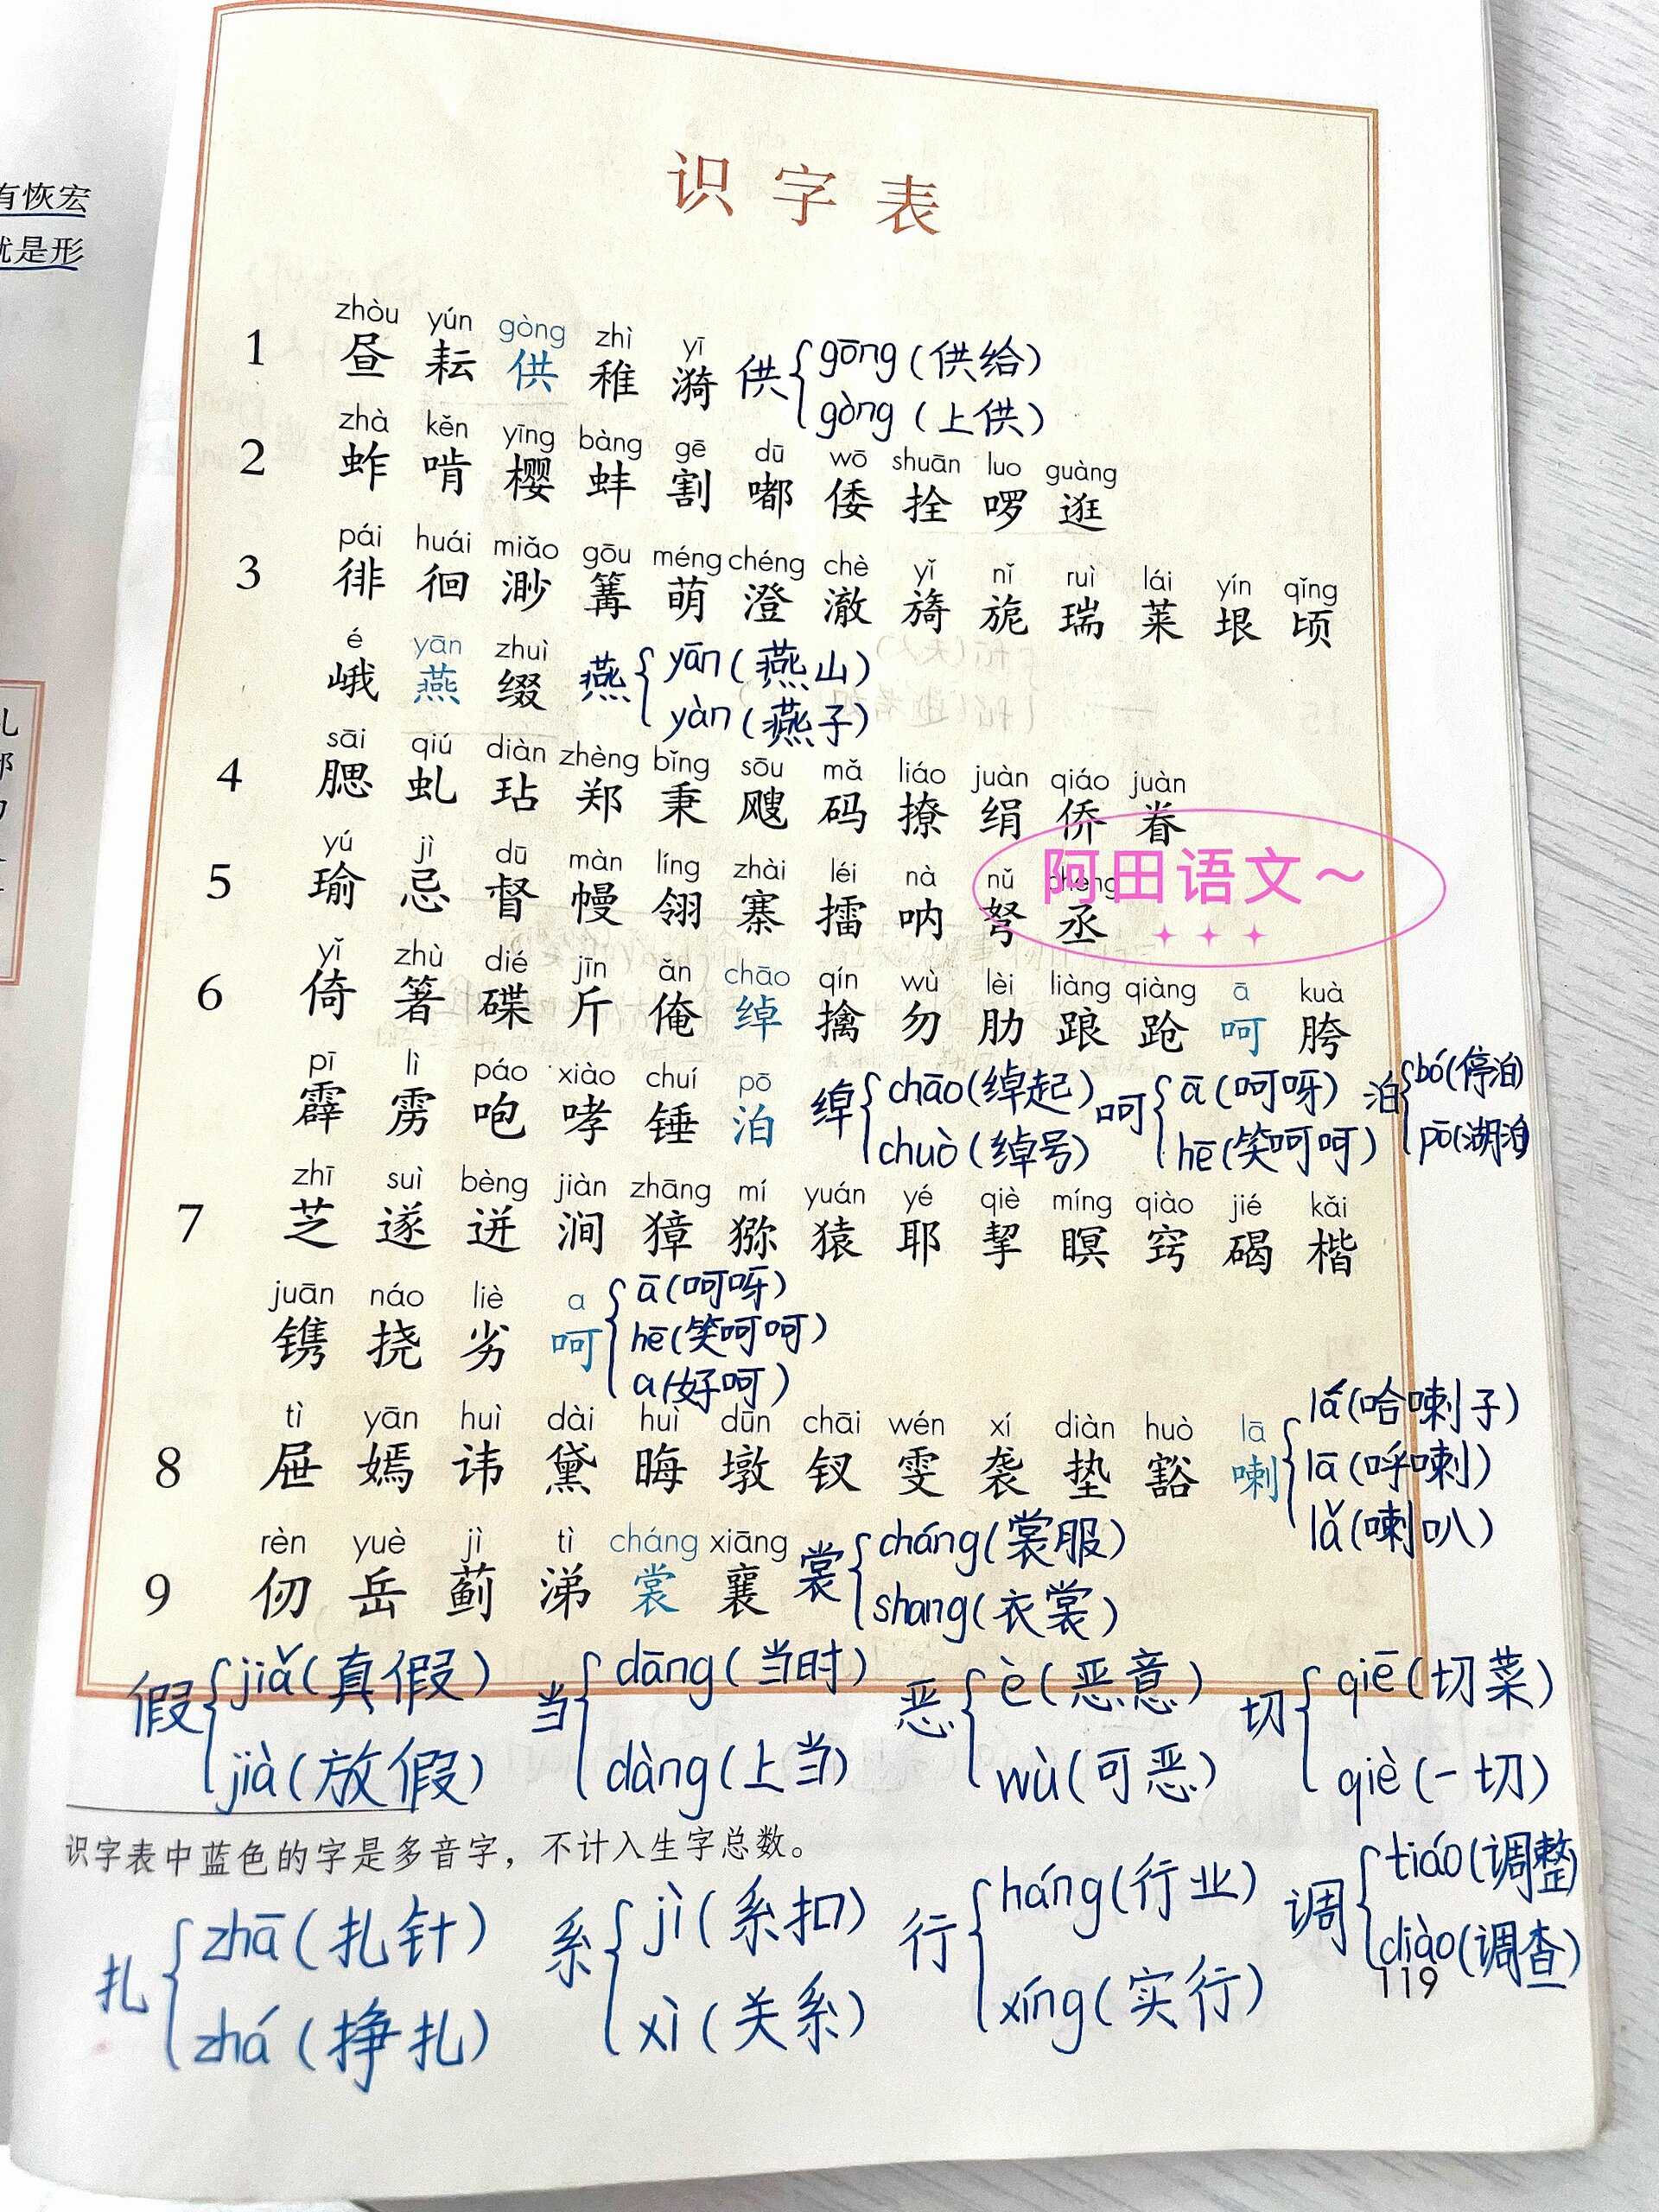 有恢宏
就是形
识字表
zhòu yún gòng zhì yī
1 昼 耘 供 稚 漪 供{gōng(供给)
gòng(上供)
zhà kěn yīng bàng gē dū wō shuān luo guàng
2 蚱 啃 樱 蚌 割 嘟 倭 拴 啰 逛
pái huái miǎo gōu méng chéng chè yǐ nǐ ruì lái yín qǐng
3 徘 徊 渺 篝 萌 澄 澈 旖 旎 瑞 莱 垠 顷
é yān zhuì
峨 燕 缀 燕{yān(燕山)
yàn(燕子)
sāi qiú diàn zhèng bǐng sōu mǎ liáo juàn qiáo juàn
4 腮 虬 玷 郑 秉 飕 码 撩 绢 侨 眷
yú jì dū màn líng zhài léi nà nǔ chéng
5 瑜 忌 督 幔 翎 寨 擂 呐 弩 丞
阿田语文~
yǐ zhù dié jīn ǎn chāo qín wù lèi liàng qiàng ā kuà
6 倚 箸 碟 斤 俺 绰 擒 勿 肋 踉 跄 呵 胯
pī lì páo xiào chuí pō
霹 雳 咆 哮 锤 泊 绰{chāo(绰起) 呵{ā(呵呀) 泊{bó(停泊)
chuò(绰号) hē(笑呵呵) pō(湖泊)
zhī suì bèng jiàn zhāng mí yuán yé qiè míng qiào jié kǎi
7 芝 遂 迸 涧 獐 猕 猿 耶 挈 瞑 窍 碣 楷
juān náo liè a
镌 挠 劣 呵{ā(呵呀)
hē(笑呵呵)
a(好呵)
tì yān huì dài huì dūn chāi wén xí diàn huò lā
8 屉 嫣 讳 黛 晦 墩 钗 雯 袭 垫 豁 喇{lá(哈喇子)
lā(呼喇)
lǎ(喇叭)
rèn yuè jì tì cháng xiāng
9 仞 岳 蓟 涕 裳 襄 裳{cháng(裳服)
shang(衣裳)
假{jiǎ(真假) 当{dāng(当时) 恶{è(恶意) 切{qiē(切菜)
jià(放假) dàng(上当) wù(可恶) qiè(一切)
识字表中蓝色的字是多音字，不计入生字总数。
扎{zhā(扎针) 系{jì(系扣) 行{háng(行业) 调{tiáo(调整)
zhá(挣扎) xì(关系) xíng(实行) diào(调查)
119